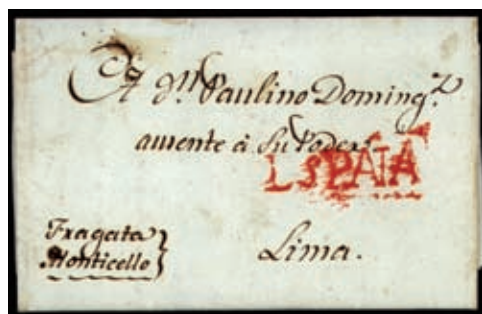 A Dn. Paulino Doming.z
ausente à Su Poder
ESPAÑA
Fragata
Monticello
Lima.